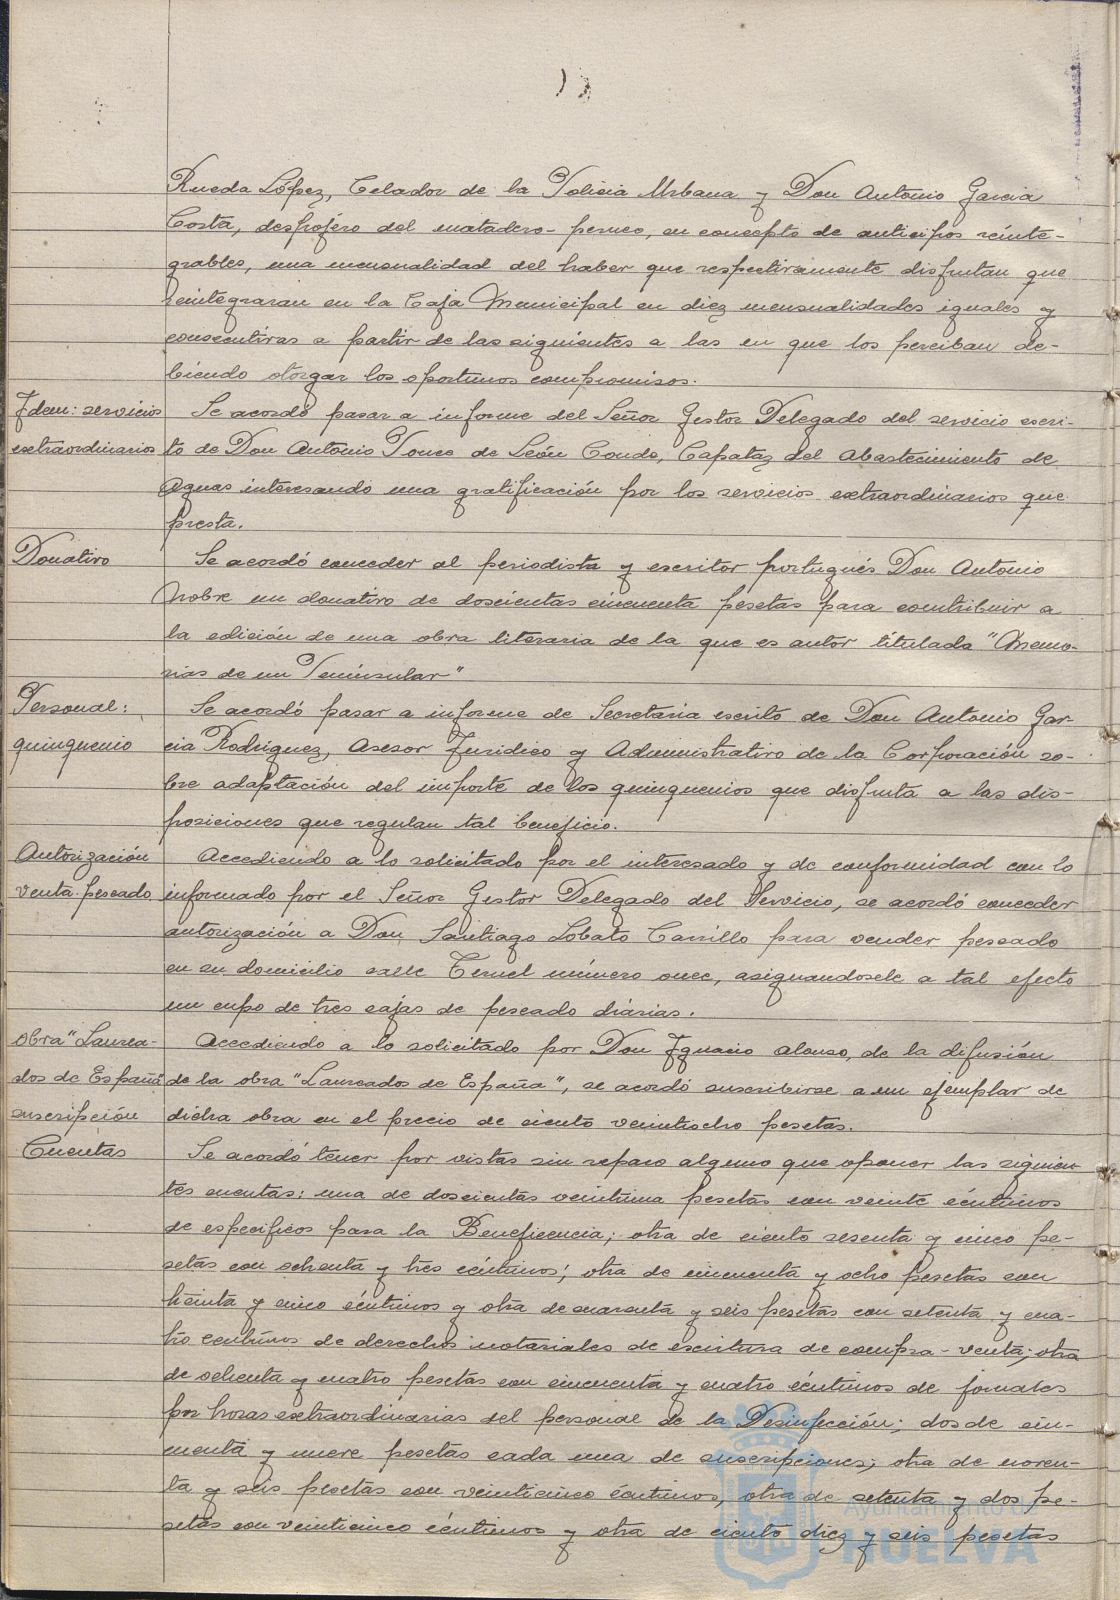 Rueda López, Celador de la Policia Urbana y Don Antonio Garcia
Costa, despojero del matadero-perneo, en concepto de anticipos reinte-
grables, una mensualidad del haber que respectivamente disfrutan que
reintegraran en la Caja Municipal en diez mensualidades iguales y
consecutivas a partir de las siguientes a las en que los perciban de-
biendo otorgar los oportunos compromisos.
Idem: servicios
extraordinarios
Se acordó pasar a informe del Señor Gestor Delegado del servicio escri-
to de Don Antonio Ponce de León Conde, Capataz del Abastecimiento de
Aguas interesando una gratificación por los servicios extraordinarios que
presta.
Donativo
Se acordó conceder al periodista y escritor portugués Don Antonio
Nobre un donativo de doscientas cincuenta pesetas para contribuir a
la edición de una obra literaria de la que es autor titulada "Memo-
rias de un Peninsular"
Personal:
quinquenio
Se acordó pasar a informe de Secretaria escrito de Don Antonio Gar-
cia Rodríguez, Asesor Juridico y Administrativo de la Corporación so-
bre adaptación del importe de los quinquenios que disfruta a las dis-
posiciones que regulan tal beneficio.
Autorización
venta pescado
Accediendo a lo solicitado por el interesado y de conformidad con lo
informado por el Señor Gestor Delegado del Servicio, se acordó conceder
autorización a Don Santiago Lobato Carrillo para vender pescado
en su domicilio calle Teruel número once, asignandosele a tal efecto
un cupo de tres cajas de pescado diarias.
Obra "Laurea-
dos de España"
suscripción
Accediendo a lo solicitado por Don Ignacio Alonso, de la difusión
de la obra "Laureados de España", se acordó suscribirse a un ejemplar de
dicha obra en el precio de ciento veintiocho pesetas.
Cuentas
Se acordó tener por vistas sin reparo alguno que oponer las siguien-
tes cuentas: una de doscientas veintiuna pesetas con veinte céntimos
de especificos para la Beneficencia; otra de ciento sesenta y cinco pe-
setas con ochenta y tres céntimos; otra de cincuenta y ocho pesetas con
treinta y cinco céntimos y otra de cuarenta y seis pesetas con setenta y cua-
tro centimos de derechos notariales de escritura de compra-venta; otra
de ochenta y cuatro pesetas con cincuenta y cuatro céntimos de jornales
por horas extraordinarias del personal de la Desinfección; dos de cin-
cuenta y nueve pesetas cada una de suscripciones; otra de noven-
ta y seis pesetas con veinticinco céntimos, otra de setenta y dos pe-
setas con veinticinco céntimos y otra de ciento diez y seis pesetas
Ayuntamiento de
HUELVA